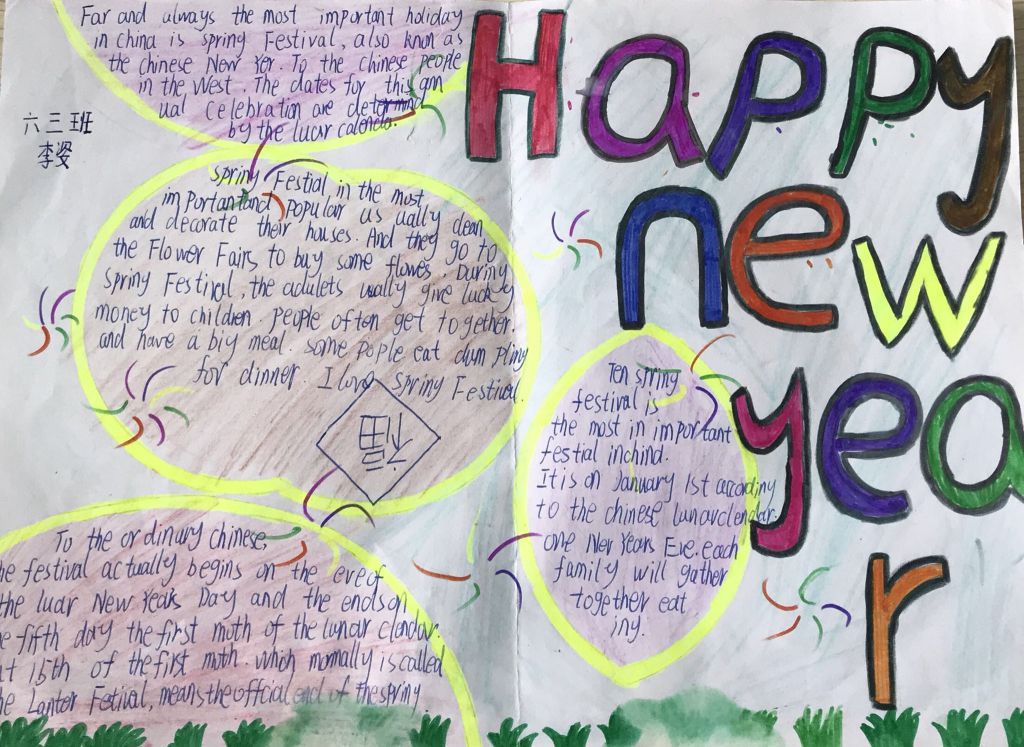 Far and always the most important holiday
in China is spring Festival, also knon as
the chinese New Yer. To the chinese people
in the West. The dates for this ann
ual celebration are determind
by the lucar calenda.
六三班
李姿
Spring Festial in the most
important and popular as ually clean
and decorate their houses. And they go to
the Flower Fairs to buy some flowes. During
spring Festival, the adulets ually give lucky
money to children. people often get together.
and have a big meal. some pople eat dum pling
for dinner. I love Spring Festival.
福
To the ordinary chinese,
he festival actually begins on the eve of
the luar New Years Day and the ends on
e fifth day the first moth of the lunar clendar.
at 15th of the first moth. which mormally is called
he Lanter Fetival, means the official end of the spring.
Happy
new
yea
r
Ten spring
festival is
the most in important
festial in chind.
It is on January 1st according
to the chinese lunar clendar.
one New Years Eve. each
family will gather
together eat
iny.